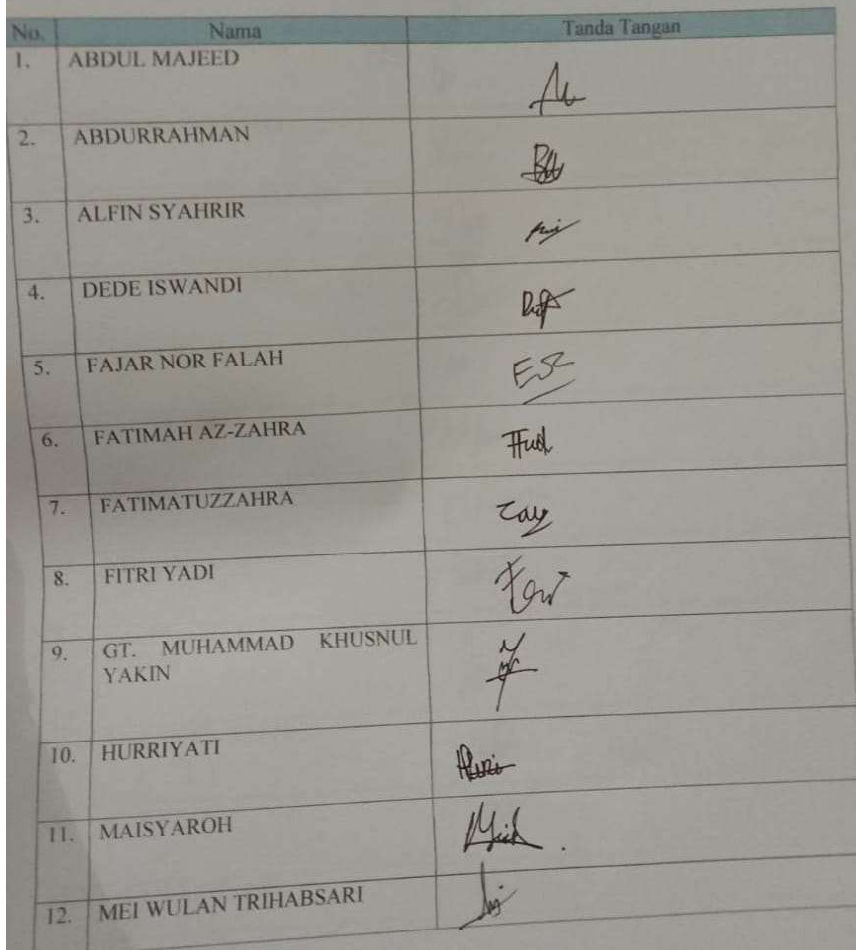 No. Nama Tanda Tangan
1. ABDUL MAJEED
2. ABDURRAHMAN
3. ALFIN SYAHRIR
4. DEDE ISWANDI
5. FAJAR NOR FALAH
6. FATIMAH AZ-ZAHRA
7. FATIMATUZZAHRA
8. FITRI YADI
9. GT. MUHAMMAD KHUSNUL
YAKIN
10. HURRIYATI
11. MAISYAROH
12. MEI WULAN TRIHABSARI